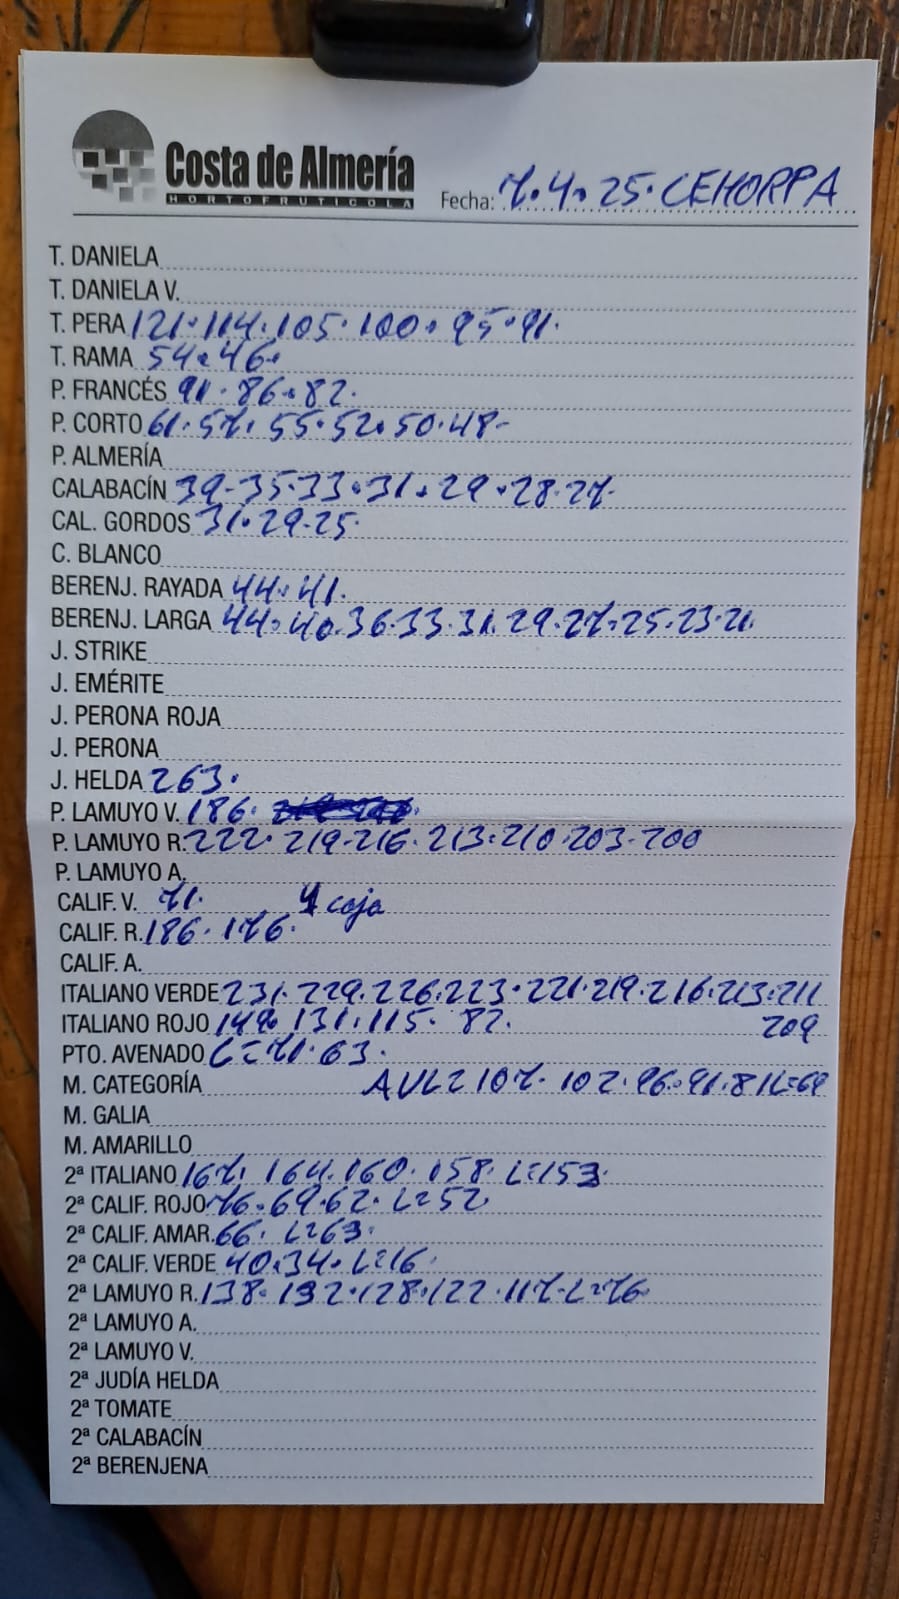 Costa de Almería
HORTOFRUTICOLA
Fecha: 7.4.25.CEHORPA
T. DANELA
T. DANIELA V.
T. PERA 121.114.105.100.95.91.
T. RAMA 54.46.
P. FRANCÉS 91.86.82.
P. CORTO 61.57.55.52.50.48-
P. ALMERÍA
CALABACÍN 39-35.33.31.29.28.27.
CAL. GORDOS 31.29.25.
C. BLANCO
BERENJ. RAYADA 44.41.
BERENJ. LARGA 44.40.36.33.31.29.27.25.23.21.
J. STRIKE
J. EMÉRITE
J. PERONA ROJA
J. PERONA
J. HELDA 263.
P. LAMUYO V. 186.
P. LAMUYO R. 222.219-216.213.210.203-200
P. LAMUYO A.
CALIF. V. 71. 1 caja
CALIF. R. 186.176.
CALIF. A.
ITALIANO VERDE 231.229.226.223.221.219.216.213.211
209
ITALIANO ROJO 147.131.115.82.
PTO. AVENADO L=71.63.
M. CATEGORÍA AVL=107.102.96.91.81L=69
M. GALIA
M. AMARILLO
2ª ITALIANO 167.164.160.158.L=153.
2ª CALIF. ROJO 76.69.62.L=52
2ª CALIF. AMAR. 66.L=63.
2ª CALIF. VERDE 40.34.L=16.
2ª LAMUYO R. 138.132.128.122.117.L=76
2ª LAMUYO A.
2ª LAMUYO V.
2ª JUDÍA HELDA
2ª TOMATE
2ª CALABACÍN
2ª BERENJENA